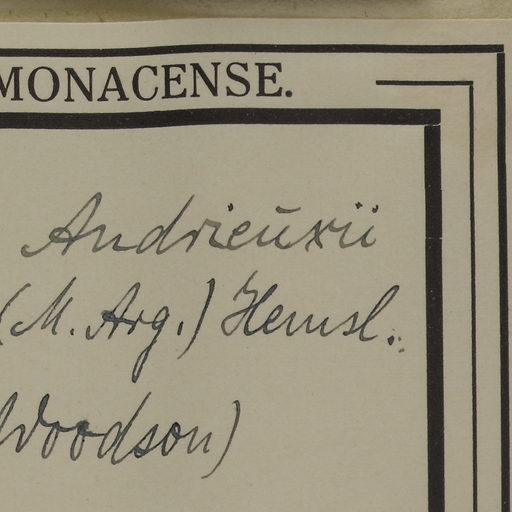 MONACENSE.
Andrieuxii
(M. Arg.) Hemsl.
Woodson)